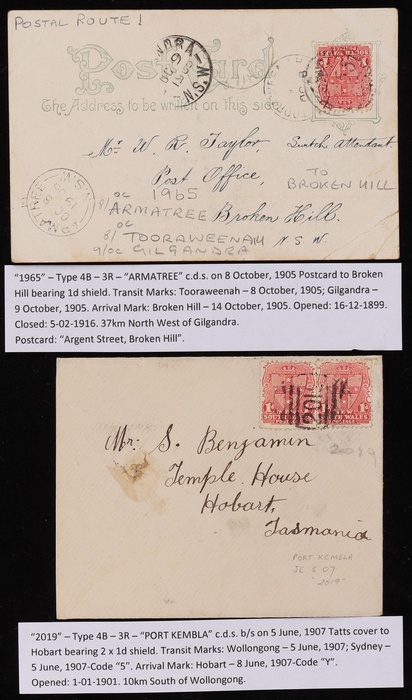 POSTAL ROUTE 1
Post Card
The Address to be written on this side
N.S.W
Mr W. R. Taylor,
Post Office,
TO
BROKEN HILL
1965
ARMATREE Broken Hill.
8/OC
TOORAWEENAH N.S.W.
9/OC GILGANDRA
ARMATREE N.S.W
"1965" – Type 4B – 3R – "ARMATREE" c.d.s. on 8 October, 1905 Postcard to Broken
Hill bearing 1d shield. Transit Marks: Tooraweenah – 8 October, 1905; Gilgandra –
9 October, 1905. Arrival Mark: Broken Hill – 14 October, 1905. Opened: 16-12-1899.
Closed: 5-02-1916. 37km North West of Gilgandra.
Postcard: "Argent Street, Broken Hill".
Mr. S. Benjamin
Temple House
Hobart,
Tasmania
2019
PORT KEMBLA
JE 5 07
"2019"
"2019" – Type 4B – 3R – "PORT KEMBLA" c.d.s. b/s on 5 June, 1907 Tatts cover to
Hobart bearing 2 x 1d shield. Transit Marks: Wollongong – 5 June, 1907; Sydney –
5 June, 1907-Code "5". Arrival Mark: Hobart – 8 June, 1907-Code "Y".
Opened: 1-01-1901. 10km South of Wollongong.